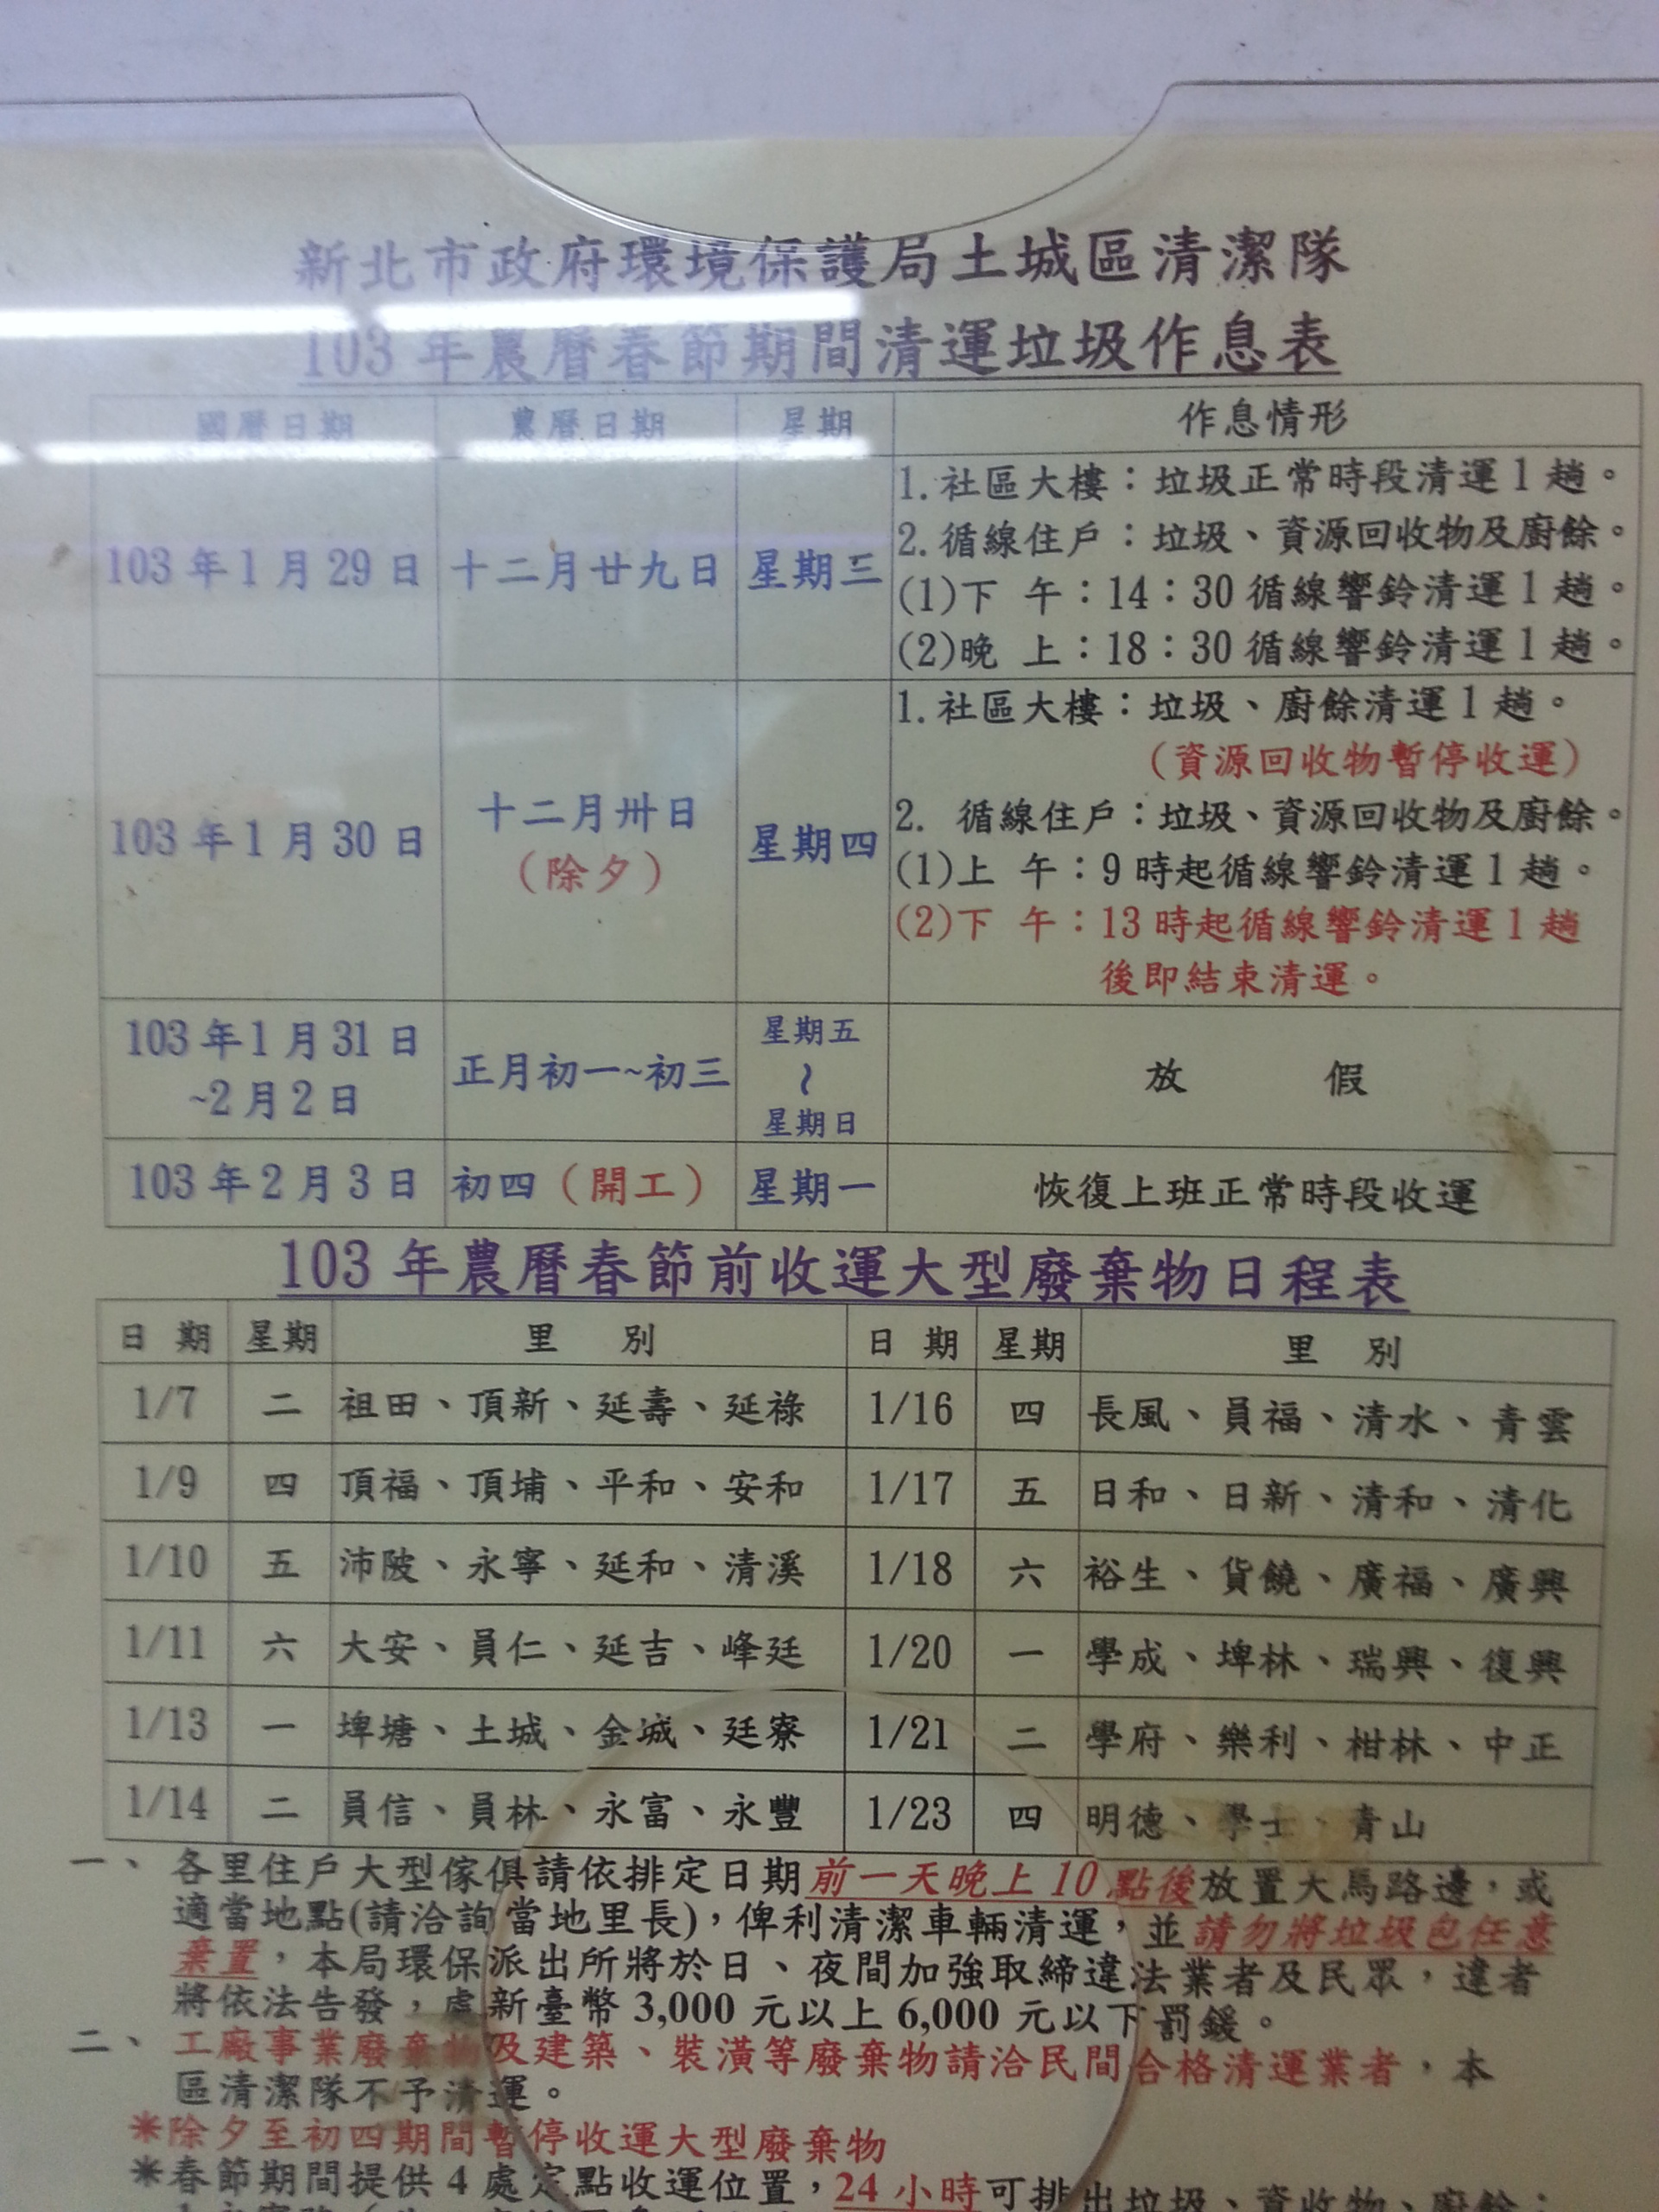 新北市政府環境保護局土城區清潔隊
103年農曆春節期間清運垃圾作息表
國曆日期 農曆日期 星期 作息情形
103年1月29日 十二月廿九日 星期三
1.社區大樓：垃圾正常時段清運1趟。
2.循線住戶：垃圾、資源回收物及廚餘。
(1)下 午：14：30循線響鈴清運1趟。
(2)晚 上：18：30循線響鈴清運1趟。
103年1月30日 十二月卅日 星期四
（除夕）
1.社區大樓：垃圾、廚餘清運1趟。
（資源回收物暫停收運）
2. 循線住戶：垃圾、資源回收物及廚餘。
(1)上 午：9時起循線響鈴清運1趟。
(2)下 午：13時起循線響鈴清運1趟
後即結束清運。
103年1月31日
~2月2日
正月初一~初三
星期五
~
星期日
放 假
103年2月3日 初四（開工） 星期一 恢復上班正常時段收運
103年農曆春節前收運大型廢棄物日程表
日 期 星期 里 別 日 期 星期 里 別
1/7 二 祖田、頂新、延壽、延祿 1/16 四 長風、員福、清水、青雲
1/9 四 頂福、頂埔、平和、安和 1/17 五 日和、日新、清和、清化
1/10 五 沛陂、永寧、延和、清溪 1/18 六 裕生、貨饒、廣福、廣興
1/11 六 大安、員仁、延吉、峰廷 1/20 一 學成、埤林、瑞興、復興
1/13 一 埤塘、土城、金城、廷寮 1/21 二 學府、樂利、柑林、中正
1/14 二 員信、員林、永富、永豐 1/23 四 明德、學士、青山
一、各里住戶大型傢俱請依排定日期前一天晚上10點後放置大馬路邊，或
適當地點(請洽詢當地里長)，俾利清潔車輛清運，並請勿將垃圾包任意
棄置，本局環保派出所將於日、夜間加強取締違法業者及民眾，違者
將依法告發，處新臺幣3,000元以上6,000元以下罰鍰。
二、工廠事業廢棄物及建築、裝潢等廢棄物請洽民間合格清運業者，本
區清潔隊不予清運。
＊除夕至初四期間暫停收運大型廢棄物
＊春節期間提供4處定點收運位置，24小時可排出垃圾、資收物、廚餘：